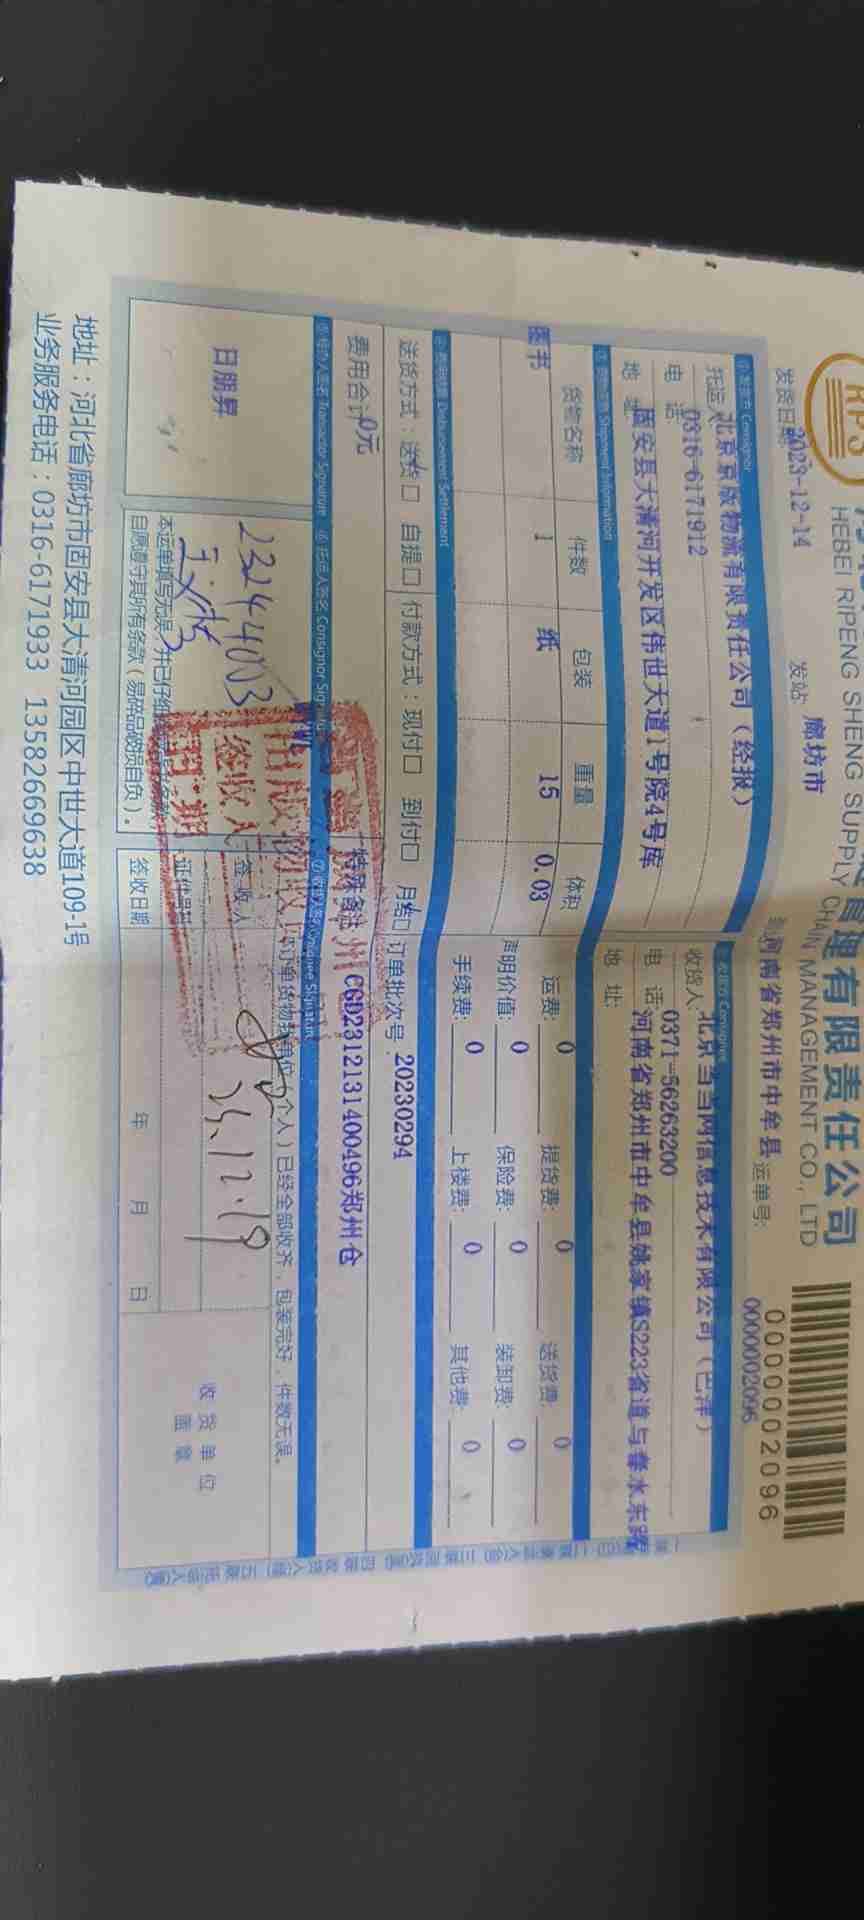 RPS
管理有限责任公司
HEBEI RIPENG SHENG SUPPLY CHAIN MANAGEMENT CO., LTD
0000002096
发货日期 2023-12-14 发站 廊坊市 到站 河南省郑州市中牟县 运单号: 0000002096
① 发货方 Consignor
托运人 北京京版物流有限责任公司(经报)
电 话 0316-6171912
地 址 固安县大清河开发区伟世大道1号院4号库
② 收货方 Consignee
收货人: 北京当当网信息技术有限公司(巴泽)
电 话 0371-56263200
地 址: 河南省郑州市中牟县姚家镇S223省道与春水东路
Shipment Information
货物名称 件数 包装 重量 体积
图书 1 纸 15 0.03
运费: 0 提货费: 0 送货费: 0
声明价值: 0 保险费: 0 装卸费: 0
手续费: 0 上楼费: 0 其他费: 0
Disbursement Settlement
送货方式: 送货 自提 付款方式: 现付 到付 月结 订单批次号: 20230294
费用合计 0元 特殊备注 CGD2312131400496郑州仓
⑤ 经办人签名 Transactor Signature ⑥ 托运人签名 Consignor Signature ⑦ 收货人签名 Consignee Signature
日朋昇
23244003
本运单填写无误,并已仔细
自愿遵守其所有条款(易碎品破损自负)。
订单货物我单位(个人)已经全部收齐,包装完好,件数无误。
签收人
23.12.19
证件号码
签收日期 年 月 日
收货单位
盖章
签收人
日期
地址:河北省廊坊市固安县大清河园区中世大道109-1号
业务服务电话:0316-6171933 13582669638